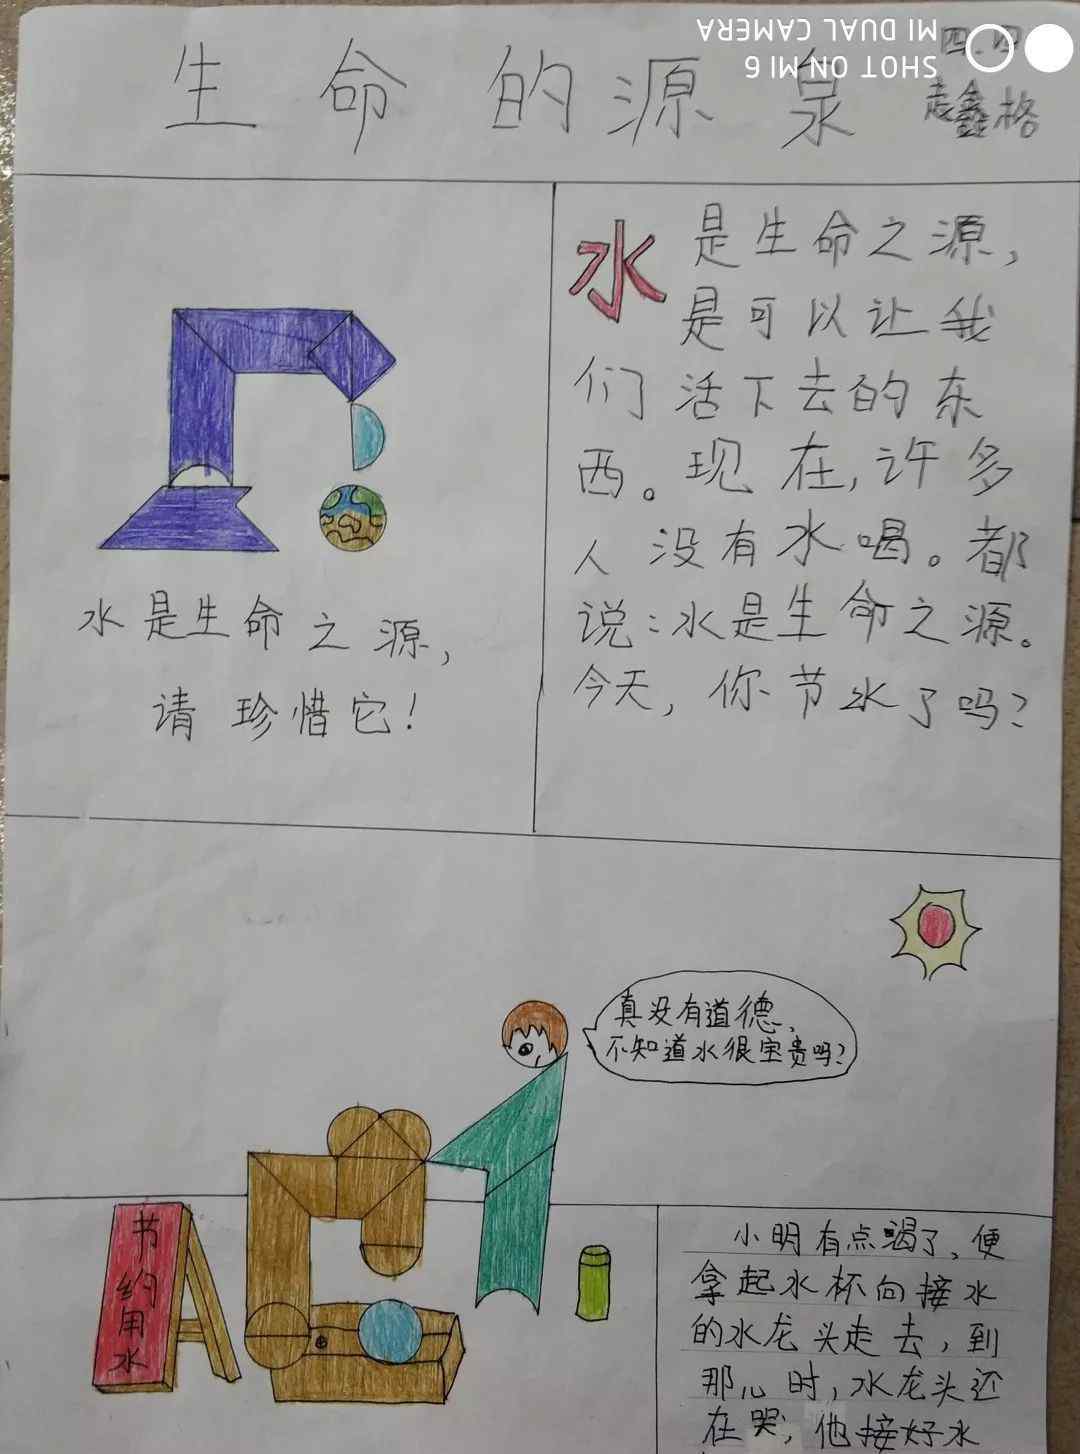 SHOT ON MI 6
MI DUAL CAMERA
四.四
生命的源泉
赵鑫格
水是生命之源,
请珍惜它!
水是生命之源,
是可以让我
们活下去的东
西。现在,许多
人没有水喝。都
说:水是生命之源。
今天,你节水了吗?
真没有道德,
不知道水很宝贵吗?
节约用水
小明有点渴了,便
拿起水杯向接水
的水龙头走去,到
那儿时,水龙头还
在哭,他接好水